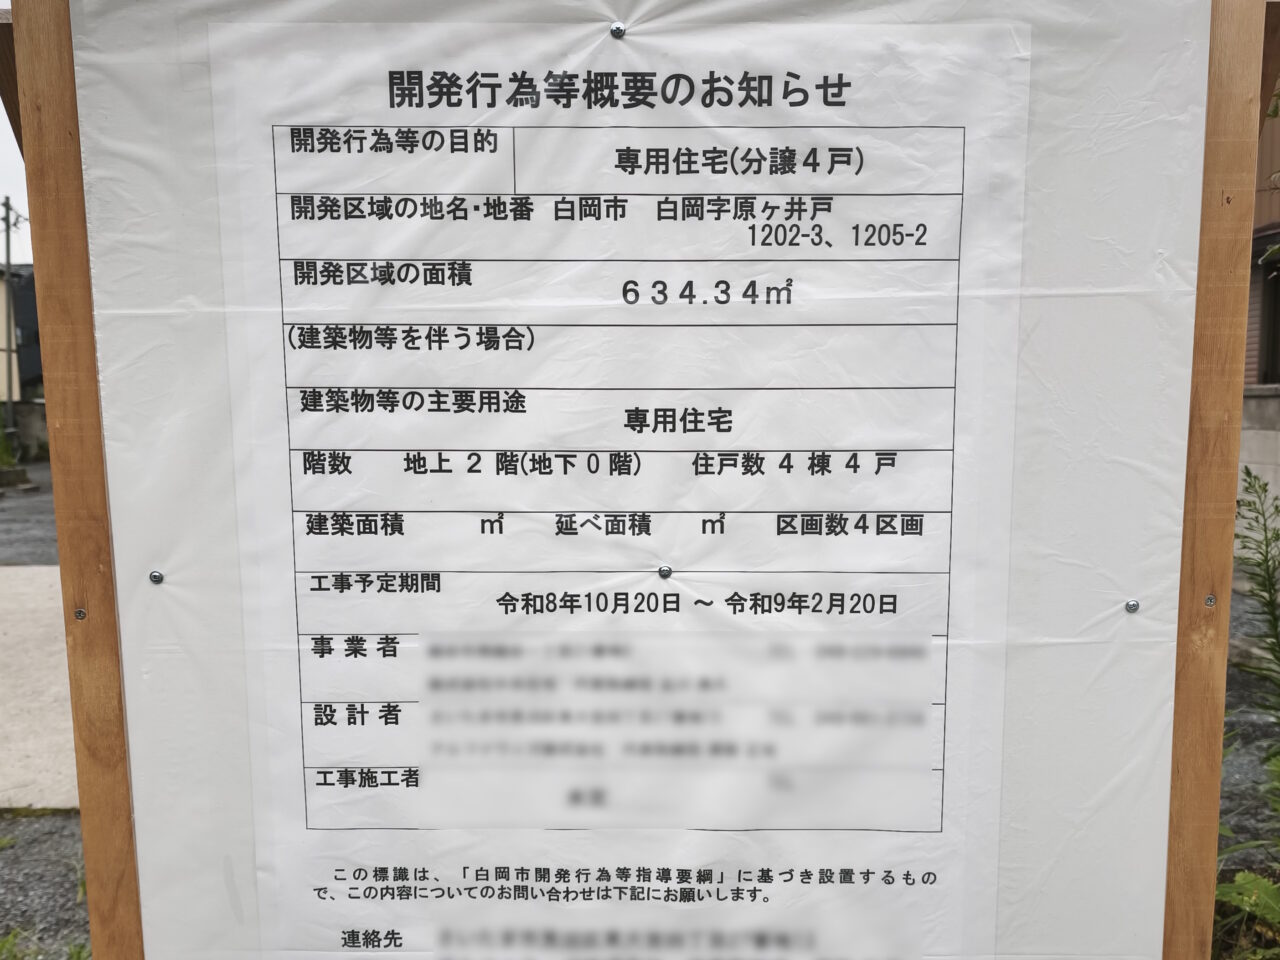 開発行為等概要のお知らせ
開発行為等の目的 専用住宅(分譲４戸)
開発区域の地名・地番 白岡市 白岡字原ヶ井戸
1202-3、1205-2
開発区域の面積 ６３４.３４㎡
(建築物等を伴う場合)
建築物等の主要用途 専用住宅
階数 地上 ２ 階(地下 ０ 階) 住戸数 ４ 棟 ４ 戸
建築面積 ㎡ 延べ面積 ㎡ 区画数４区画
工事予定期間 令和8年10月20日 ～ 令和9年2月20日
事業者
設計者
工事施工者
この標識は、「白岡市開発行為等指導要綱」に基づき設置するもの
で、この内容についてのお問い合わせは下記にお願いします。
連絡先